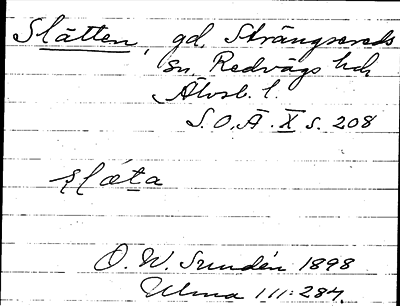 Slätten, gd, Strängsereds
sn, Redvägs hd,
Älvsb. l.
S. O. Ä. X s. 208
slǽta
O. W. Sundén 1898
Ulma 111:284,